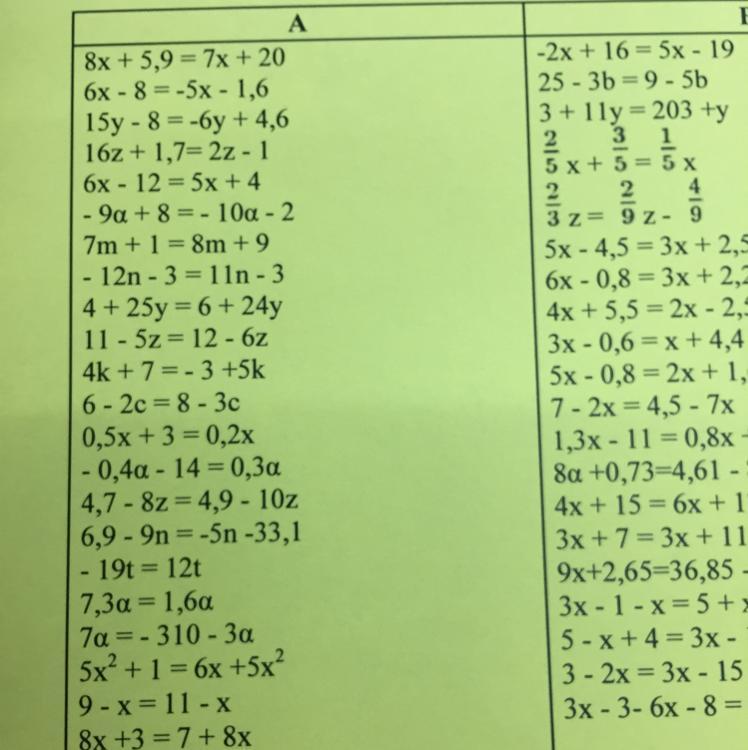 A
8x + 5,9 = 7x + 20
6x - 8 = -5x - 1,6
15y - 8 = -6y + 4,6
16z + 1,7= 2z - 1
6x - 12 = 5x + 4
- 9α + 8 = - 10α - 2
7m + 1 = 8m + 9
- 12n - 3 = 11n - 3
4 + 25y = 6 + 24y
11 - 5z = 12 - 6z
4k + 7 = - 3 +5k
6 - 2c = 8 - 3c
0,5x + 3 = 0,2x
- 0,4α - 14 = 0,3α
4,7 - 8z = 4,9 - 10z
6,9 - 9n = -5n -33,1
- 19t = 12t
7,3α = 1,6α
7α = - 310 - 3α
5x² + 1 = 6x +5x²
9 - x = 11 - x
8x +3 = 7 + 8x
-2x + 16 = 5x - 19
25 - 3b = 9 - 5b
3 + 11y = 203 +y
2/5 x + 3/5 = 1/5 x
2/3 z = 2/9 z - 4/9
5x - 4,5 = 3x + 2,5
6x - 0,8 = 3x + 2,2
4x + 5,5 = 2x - 2,5
3x - 0,6 = x + 4,4
5x - 0,8 = 2x + 1,
7 - 2x = 4,5 - 7x
1,3x - 11 = 0,8x
8α +0,73=4,61 -
4x + 15 = 6x + 1
3x + 7 = 3x + 11
9x+2,65=36,85 -
3x - 1 - x = 5 + x
5 - x + 4 = 3x -
3 - 2x = 3x - 15
3x - 3- 6x - 8 =